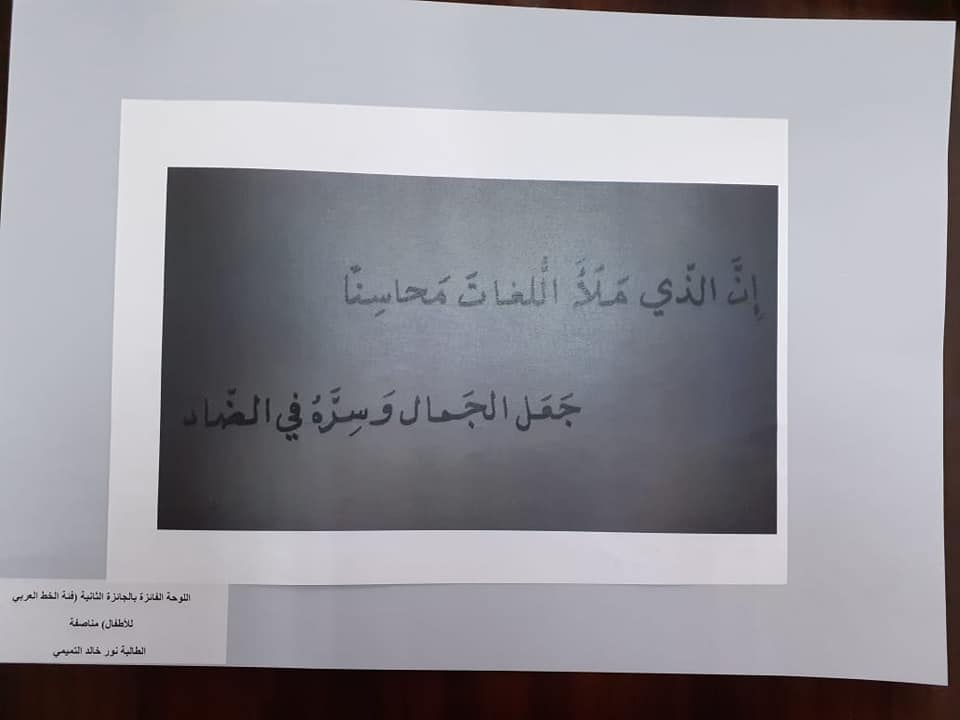 إِنَّ الذّي مَلَأَ الُّلغاتَ مَحاسِنًا
جَعَل الجَمال وَسِرَّهُ في الضّاد
اللوحة الفائزة بالجائزة الثانية (فئة الخط العربي
للأطفال) مناصفة
الطالبة نور خالد التميمي